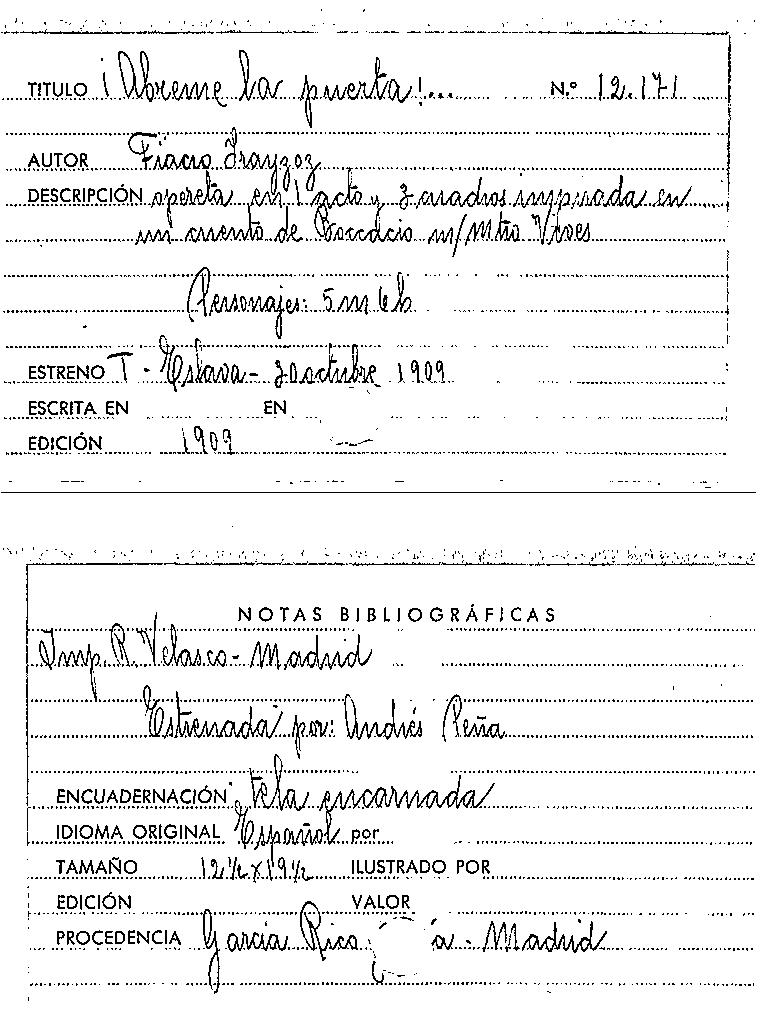 TITULO ¡Abreme la puerta!... N.º 12.171
AUTOR Fiacro Irayzoz
DESCRIPCIÓN opereta en 1 acto y 3 cuadros inspirada en
un cuento de Boccacio m/ Mtro Vives
Personajes: 5 m 6 h
ESTRENO T - Eslava - 20 octubre 1909
ESCRITA EN EN
EDICIÓN 1909
NOTAS BIBLIOGRÁFICAS
Imp. R. Velasco - Madrid
Estrenada por: Andrés Peña
ENCUADERNACIÓN tela encarnada
IDIOMA ORIGINAL Español por
TAMAÑO 12 ½ x 19 ½ ILUSTRADO POR
EDICIÓN VALOR
PROCEDENCIA García Rico - Madrid